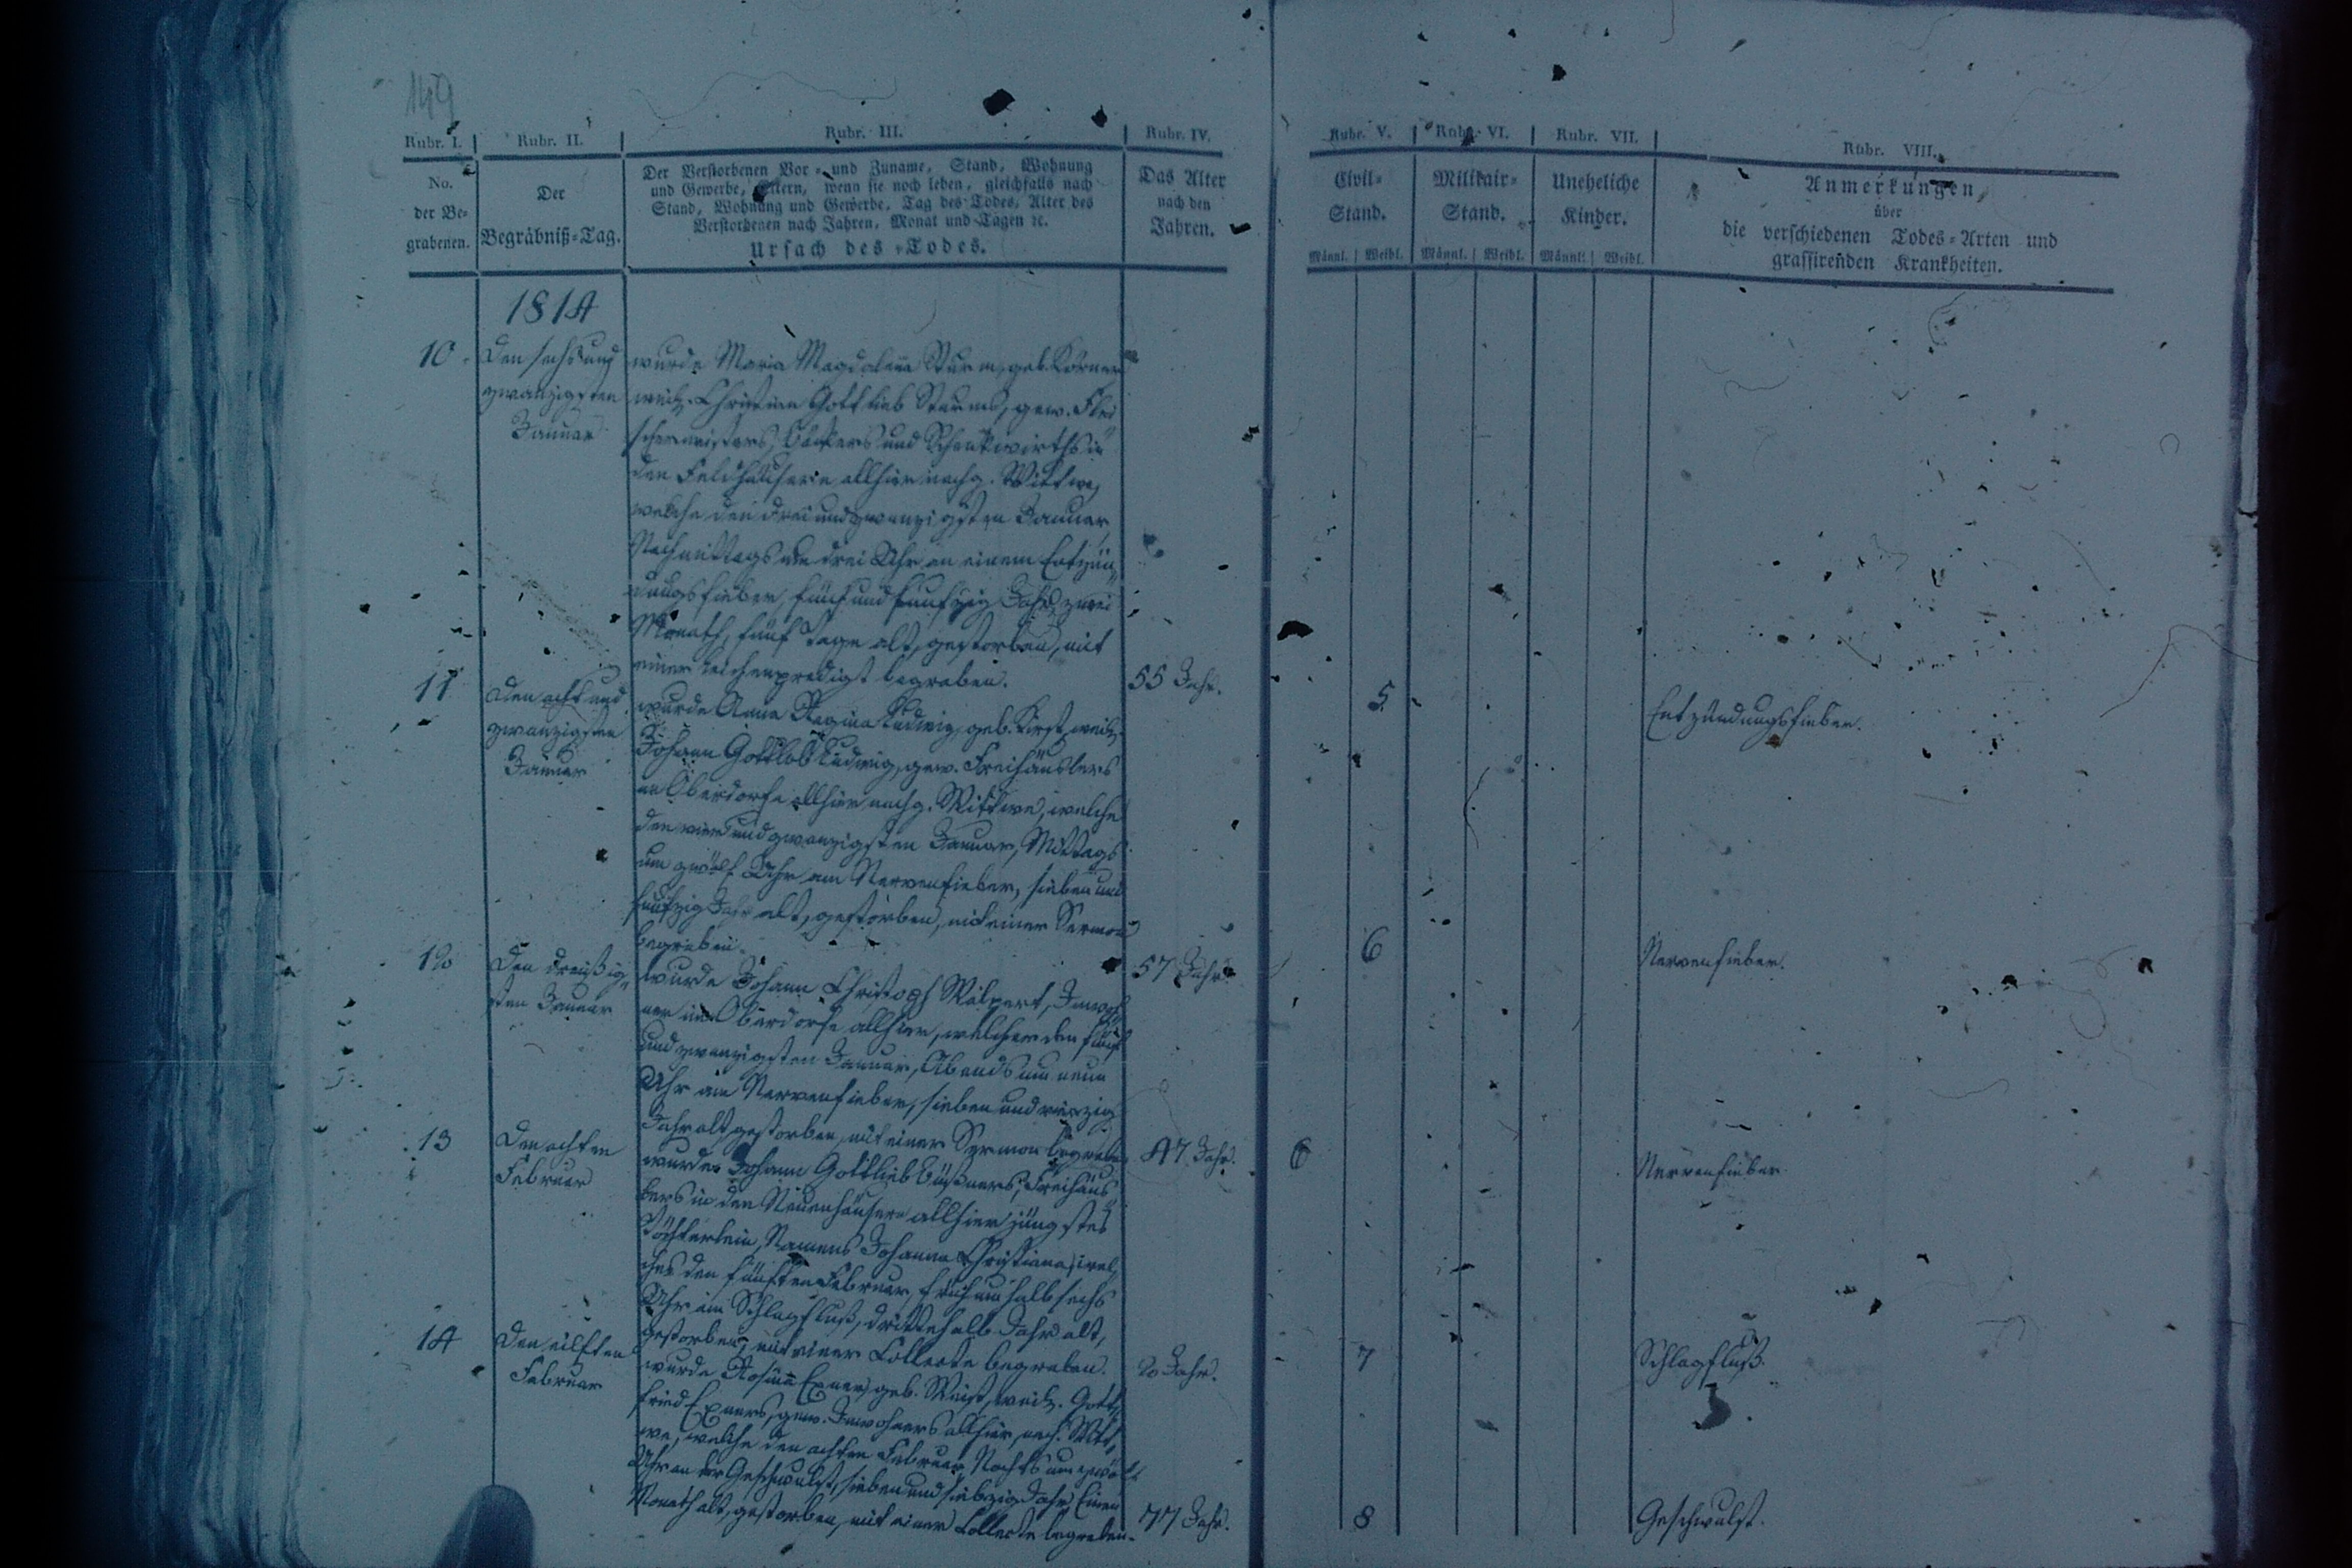 149
Rubr. I. Rubr. II. Rubr. III. Rubr. IV. Rubr. V. Rubr. VI. Rubr. VII. Rubr. VIII.
No.
der Be-
grabenen.
Der
Begräbniß-Tag.
Der Verstorbenen Vor- und Zuname, Stand, Wohnung
und Gewerbe, Eltern, wenn sie noch leben, gleichfalls nach
Stand, Wohnung und Gewerbe, Tag des Todes, Alter des
Verstorbenen nach Jahren, Monat und Tagen ec.
Ursach des Todes.
Das Alter
nach den
Jahren.
Civil-
Stand.
Männl. Weibl.
Militair-
Stand.
Männl. Weibl.
Uneheliche
Kinder.
Männl. Weibl.
Anmerkungen,
über
die verschiedenen Todes-Arten und
grassirenden Krankheiten.
1814
10 Den sechs und
zwanzigsten
Januar
wurde Maria Magdalena Sturm, geb. Körner
weil. Christian Gottlieb Sturms, gew. Flei
schermeisters, Bäckers und Schenkwirths in
den Feldhäusern allhier nachg. Wittwe,
welche den drei und zwanzigsten Januar,
Nachmittags um drei Uhr an einem Entzün
dungsfieber, fünf und funfzig Jahr, zwei
Monath, fünf Tage alt, gestorben, mit
einer Leichenpredigt begraben.
55 Jahr. 5 Entzündungsfieber.
11 Den acht und
zwanzigsten
Januar
wurde Anna Regina Ludwig, geb. Kirst, weil.
Johann Gottlob Ludwig, gew. Freihäuslers
im Oberdorfe allhier nachg. Wittwe, welche
den vier und zwanzigsten Januar, Mittags
um zwölf Uhr am Nervenfieber, sieben und
funfzig Jahr alt, gestorben, mit einer Sermon
begraben.
57 Jahr. 6 Nervenfieber.
12 Den dreißig
sten Januar
wurde Johann Christoph Walpert, Inwoh
ner im Oberdorfe allhier, welcher den fünf
und zwanzigsten Januar, Abends um neun
Uhr am Nervenfieber, sieben und vierzig
Jahr alt, gestorben, mit einer Sermon begraben.
47 Jahr. 6 Nervenfieber
13 Den achten
Februar
wurde Johann Gottlieb Büßners, Freihäus
lers in den Neuenhäusern allhier jüngstes
Töchterlein, Namens Johanna Christiana, wel
ches den fünften Februar, früh um halb sechs
Uhr am Schlagfluß, drittehalb Jahr alt,
gestorben, mit einer Collecte begraben.
2 Jahr. 7 Schlagfluß.
14 Den eilften
Februar
wurde Rosina Exner, geb. Weist, weil. Gott
fried Exners, gew. Inwohners allhier, nachg. Witt
we, welche den achten Februar, Nachts um zwölf
Uhr an der Geschwulst, sieben und siebzig Jahr, Einen
Monath alt, gestorben, mit einer Collecte begraben.
77 Jahr. 8 Geschwulst.